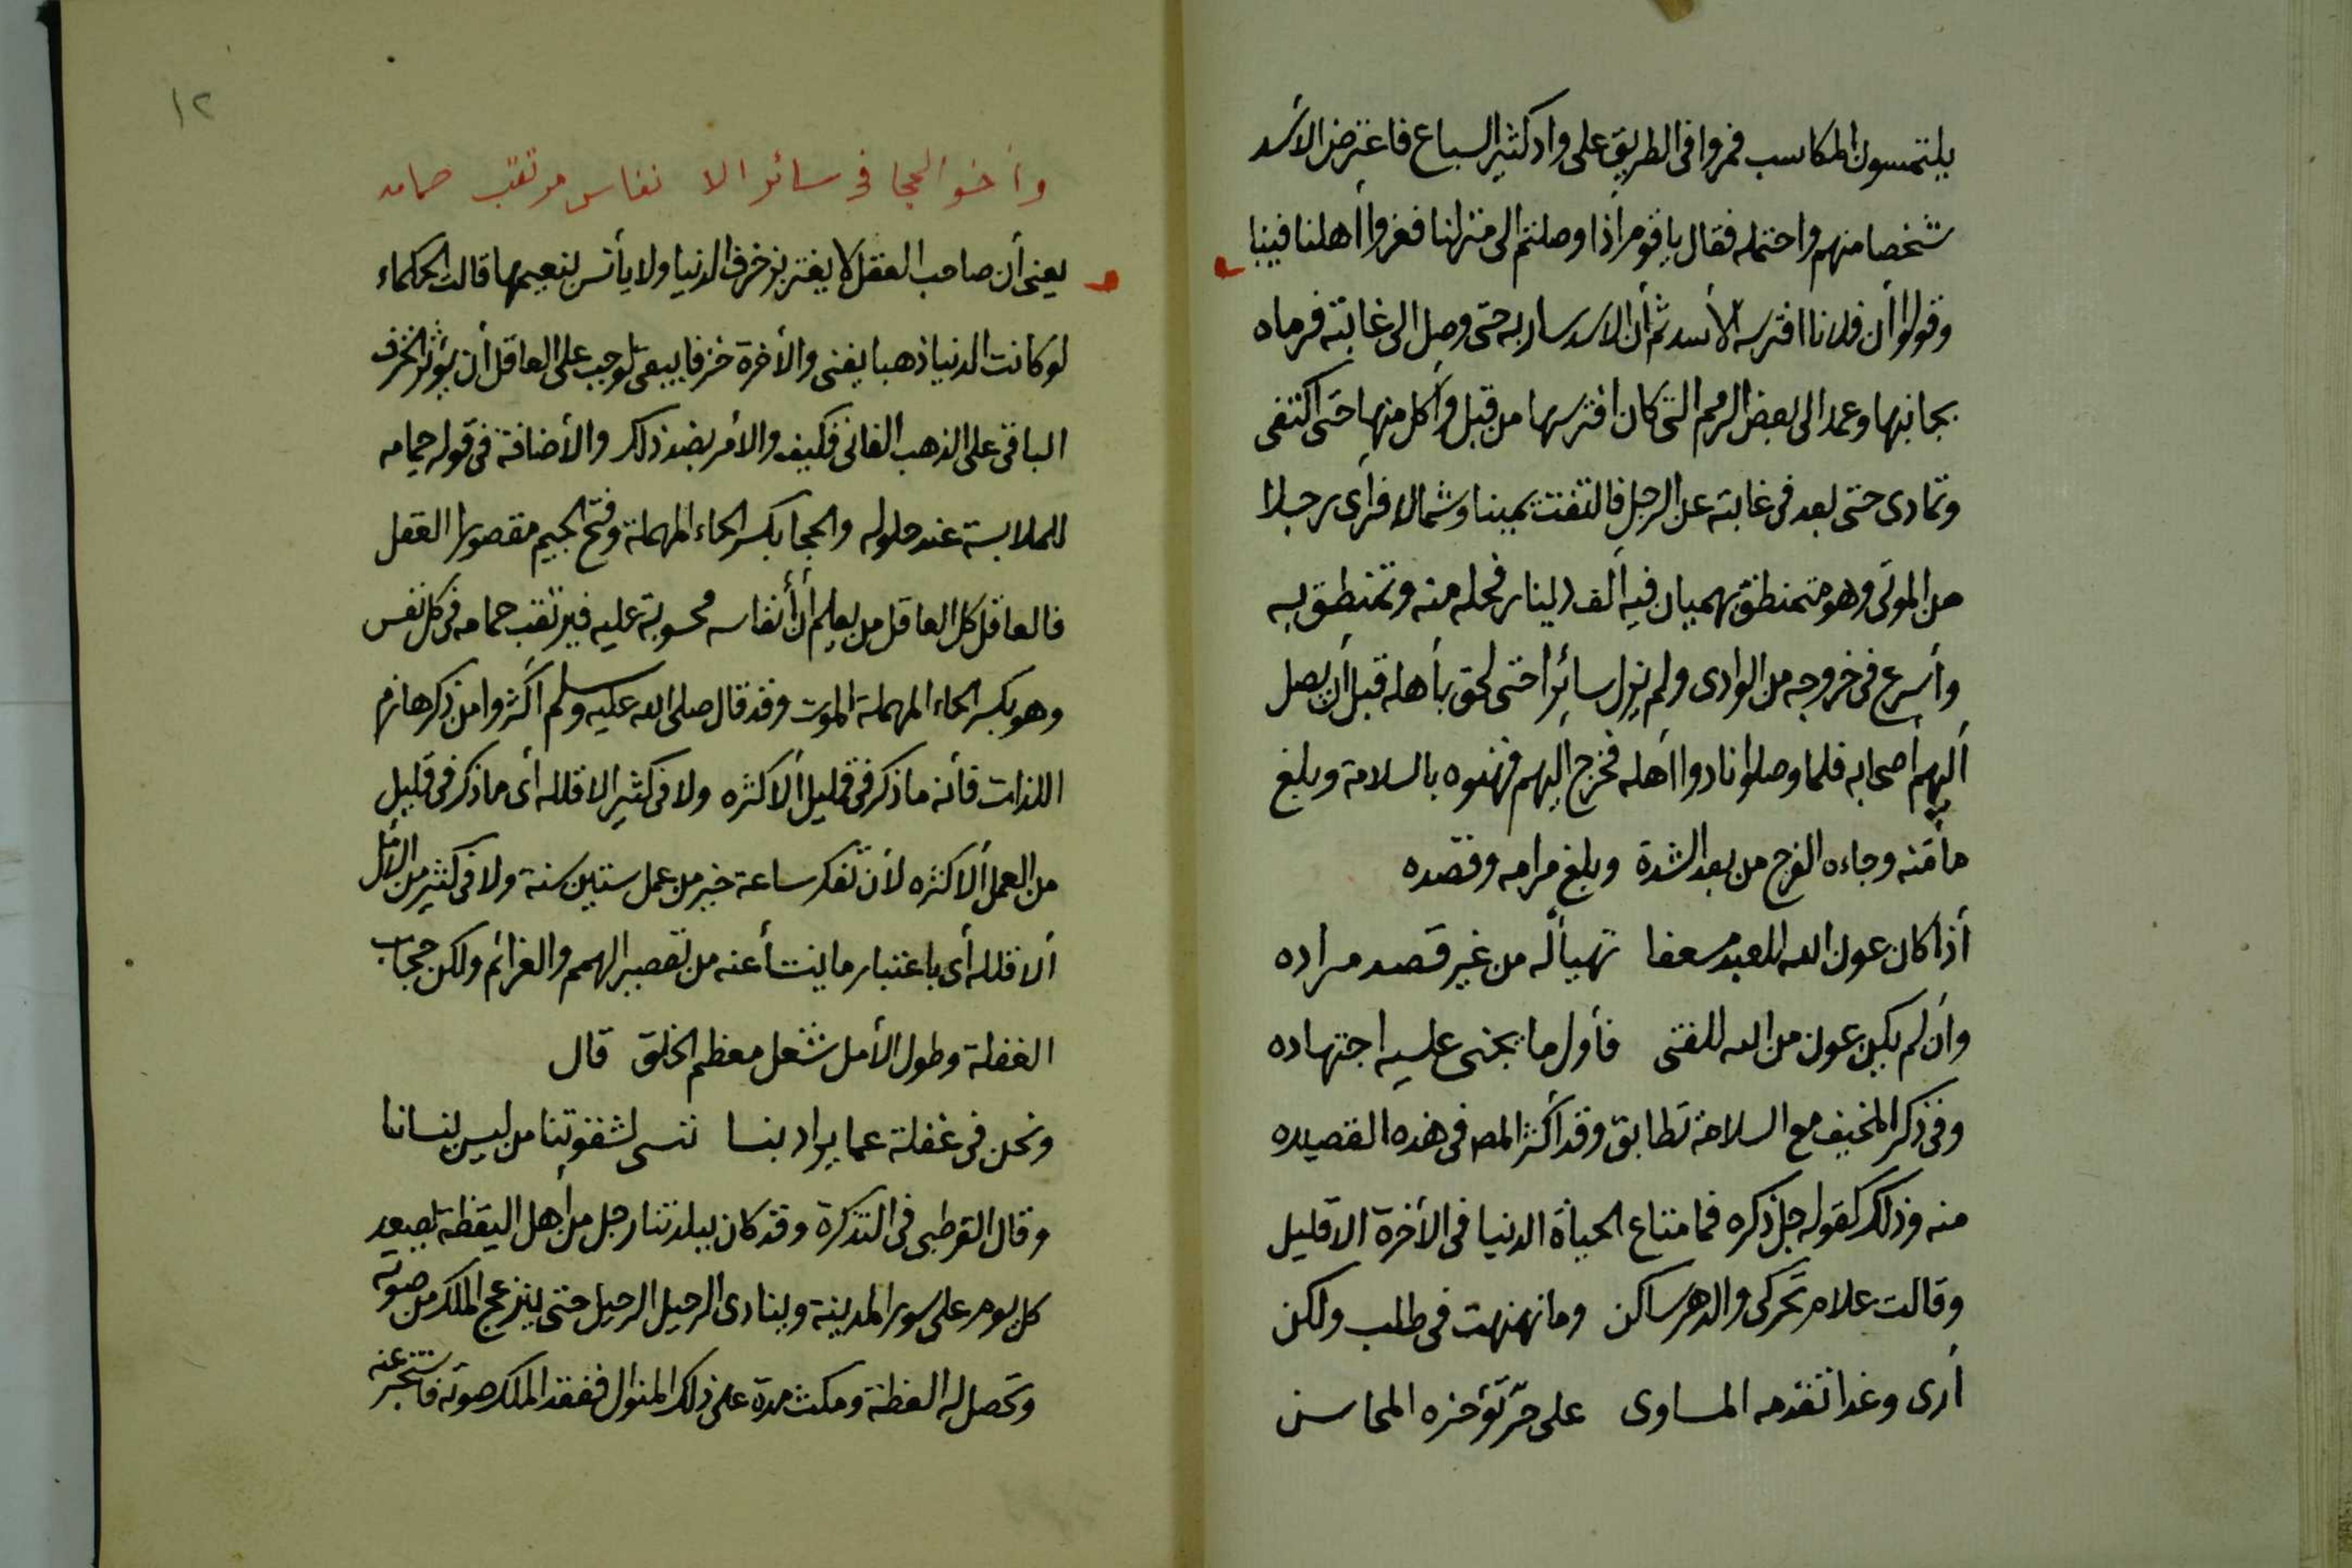 يلتمسون المكاسب فمروا فى الطريق على واد كثير السباع فاعترض الأسد
شخصا منهم واحتمله فقال يا قوم أذا وصلتم الى منزلنا فعزوا أهلنا فينا
وقولوا أن فلانا افترسه الأسد ثم أن الاسد سار به حتى وصل الى غابته فرماه
بجانبها وعمد الى بعض الرمم التى كان افترسها من قبل وأكل منها حتى اكتفى
وتمادى حتى بعد فى غابته عن الرجل فالتفت يمينا وشمالا فرأى رجلا
من الموتى وهو متمنطق بهميان فيه ألف دينار فحله منه وتمنطق به
وأسرع فى خروجه من الوادى ولم يزل سائرا حتى لحق بأهله قبل أن يصل
أليهم أصحابه فلما وصلوا نادوا أهله فخرج أليهم فهنوه بالسلامة وبلغ
مأمنه وجاءه الفرج من بعد الشدة وبلغ مرامه وقصده
أذا كان عون الله للعبد مسعفا تهيأ له من غير قصد مراده
وأن لم يكن عون من الله للفتى فأول ما يجنى عليه اجتهاده
وفى ذكر المخيف مع السلامة تطابق وقد أكثر المص فى هذه القصيده
منه وذلك كقوله جل ذكره فما متاع الحياة الدنيا فى الأخرة الا قليل
وقالت علام تحركى والدهر ساكن وما نهنهت فى طلب ولكن
أرى وغدا تقدمه المساوى على حر تؤخره المحاسن
١٢
وأخو الحجا فى سائر الا نفاس مرتقب حمامه
يعنى أن صاحب العقل لا يغتر بزخرف الدنيا ولا يأنس بنعيمها قالت الحكماء
لو كانت الدنيا ذهبا يفنى والأخرة خزفا يبقى لوجب على العاقل أن يؤثر الخزف
الباقى على الذهب الفانى فكيف والأمر بضد ذلك والأضافة فى قوله حمامه
للملابسة عند حلوله والحجا بكسر الحاء المهملة وفتح الجيم مقصورا العقل
فالعاقل كل العاقل من يعلم أن أنفاسه محسوبة عليه فيرتقب حمامه فى كل نفس
وهو بكسر الحاء المهملة الموت وقد قال صلى الله عليه وسلم أكثروا من ذكر هازم
اللذات فأنه ما ذكر فى قليل ألا كثره ولا فى كثير الا قلله أى ما ذكر فى قليل
من العمل ألا كثره لأن تفكر ساعة خير من عمل ستين سنة ولا فى كثير من الأمل
ألا قلله أى باعتبار ما ينشأ عنه من تقصير الهمم والعزائم ولكن حجاب
الغفلة وطول الأمل شغل معظم الخلق قال
ونحن فى غفلة عما يراد بنا ننسى لشقوتنا من ليس ينسانا
وقال القرطبى فى التذكرة وقد كان ببلدتنا رجل من أهل اليقظة يصعد
كل يوم على سور المدينة وينادى الرحيل الرحيل حتى ينزعج الملك من صوته
وتحصل له العظة ومكث مدة على ذلك المنوال ففقد الملك صوته فاستخبر عنه